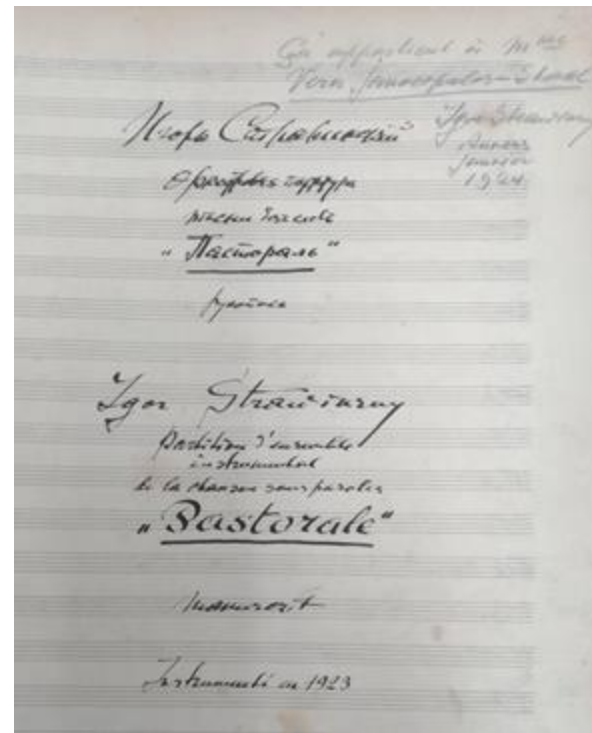 appartient à Mme
Vera Janacopulos-Staal
Igor Strawinsky
Anvers
Janvier
1924
Игорь Стравинский
песни без слов
"Пастораль"
рукопись
Igor Strawinsky
Partition d'ensemble
instrumental
de la chanson sans paroles
"Pastorale"
manuscrit
Instrumenté en 1923